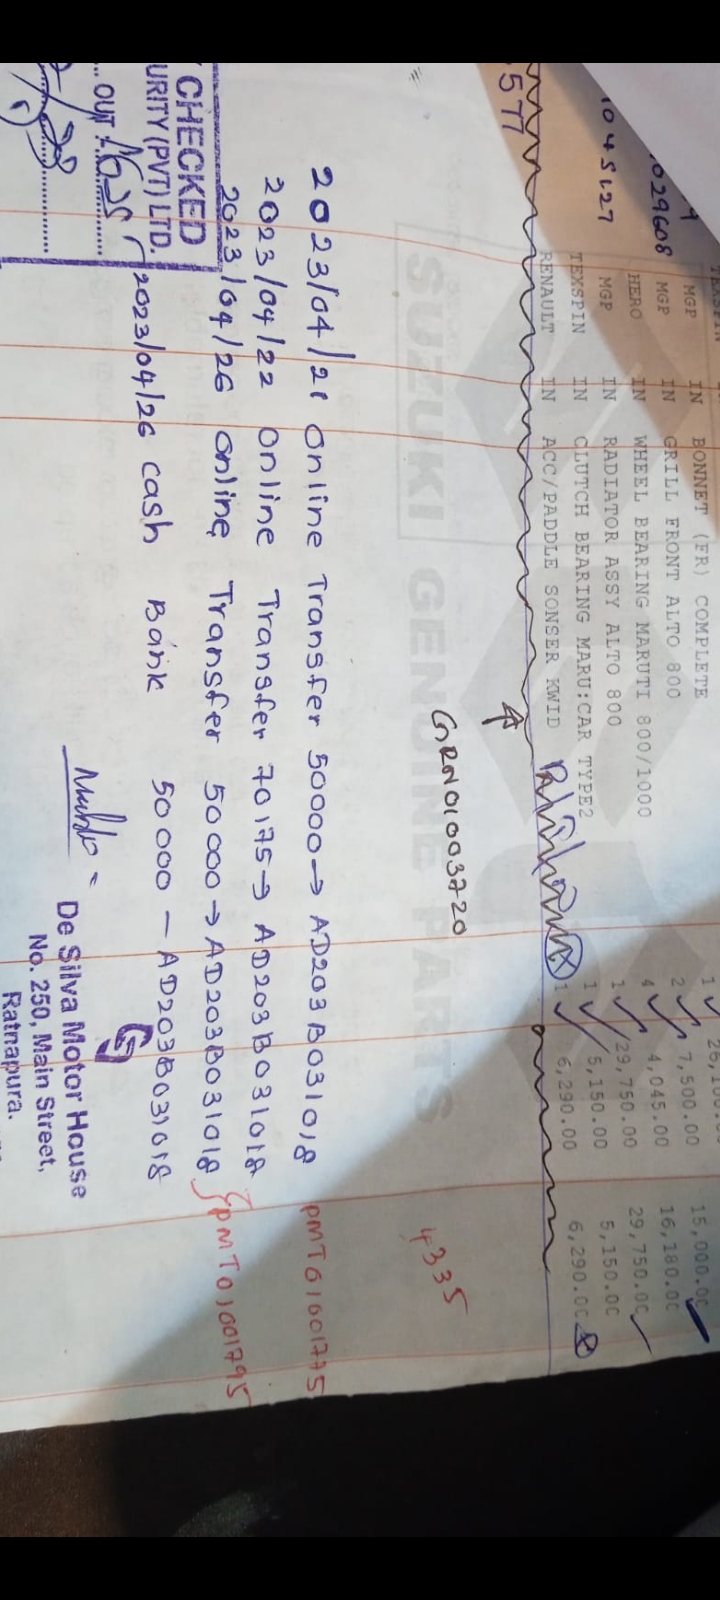 MGP IN BONNET (FR) COMPLETE 1
029608 MGP IN GRILL FRONT ALTO 800 2 7,500.00 15,000.00
HERO IN WHEEL BEARING MARUTI 800/1000 4 4,045.00 16,180.00
1045127 MGP IN RADIATOR ASSY ALTO 800 1 29,750.00 29,750.00
TEXSPIN IN CLUTCH BEARING MARU:CAR TYPE2 1 5,150.00 5,150.00
RENAULT IN ACC/PADDLE SONSER KWID 1 6,290.00 6,290.00
577
GRN01003720
4335
SUZUKI GENUINE PARTS
2023/04/21 Online Transfer 50000→ AD203B031018 PMT01001775
2023/04/22 Online Transfer 70175→ AD203B031018
2023/04/26 Online Transfer 50000→ AD203B031018 PMT01001795
2023/04/26 cash Bank 50000 — AD203B031018
CHECKED
URITY (PVT) LTD.
OUT: 1635
De Silva Motor House
No. 250, Main Street,
Ratnapura.